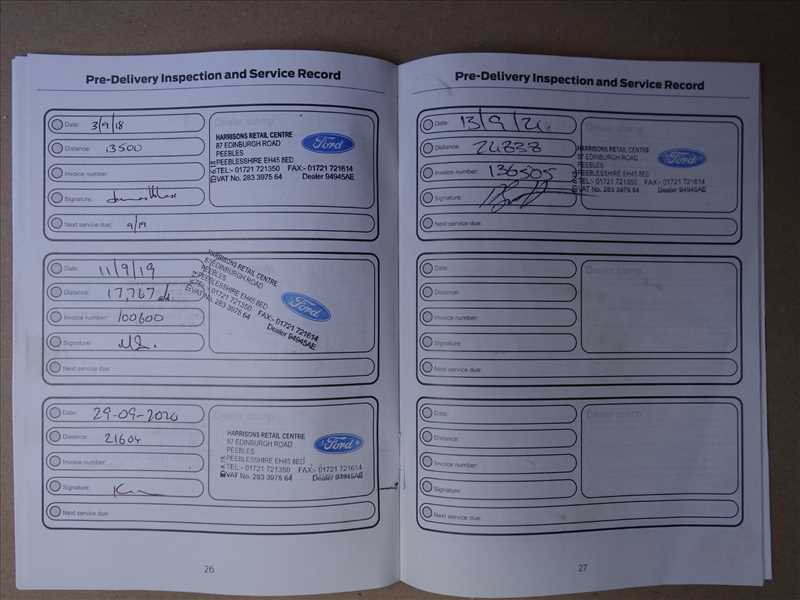 Pre-Delivery Inspection and Service Record
Date: 3/9/18
Distance: 13500
Invoice number:
Signature:
Next service due: 9/19
HARRISONS RETAIL CENTRE
87 EDINBURGH ROAD
PEEBLES
PEEBLESSHIRE EH45 8ED
TEL:- 01721 721350 FAX:- 01721 721614
VAT No. 283 3975 64 Dealer 94945AE
Ford
Date: 11/9/19
Distance: 17,767
Invoice number: 100600
Signature:
Next service due:
HARRISONS RETAIL CENTRE
87 EDINBURGH ROAD
PEEBLES
PEEBLESSHIRE EH45 8ED
TEL:- 01721 721350
FAX:- 01721 721614
VAT No. 283 3975 64
Dealer 94945AE
Ford
Date: 29-09-2020
Distance: 21604
Invoice number:
Signature:
Next service due:
HARRISONS RETAIL CENTRE
87 EDINBURGH ROAD
PEEBLES
PEEBLESSHIRE EH45 8ED
TEL:- 01721 721350 FAX:- 01721 721614
VAT No. 283 3975 64 Dealer 94945AE
Ford
26
Pre-Delivery Inspection and Service Record
Date: 13/9/
Distance: 24838
Invoice number: 136505
Signature:
Next service due:
Dealer stamp
HARRISONS RETAIL CENTRE
87 EDINBURGH ROAD
PEEBLES
PEEBLESSHIRE EH45 8ED
TEL:- 01721 721350 FAX:- 01721 721614
VAT No. 283 3975 64 Dealer 94945AE
Ford
Date:
Distance:
Invoice number:
Signature:
Next service due:
Dealer stamp
Date:
Distance:
Invoice number:
Signature:
Next service due:
Dealer stamp
27